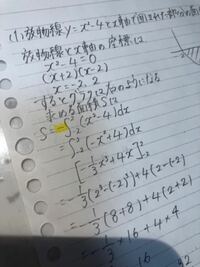 (1) 放物線 y=x²-4とx軸で囲まれた部分の面
放物線とx軸の座標は
x²-4=0
(x+2)(x-2)
x=-2, 2
するとグラフは右のようになる
求める面積Sは
S=-∫²₋₂(x²-4)dx
=∫²₋₂(-x²+4)dx
[-1/3x³+4x]²₋₂
=-1/3(2³-(-2)³)+4(2-(-2)
=-1/3(8+8)+4(2+2)
=-1/3×16+4×4
16